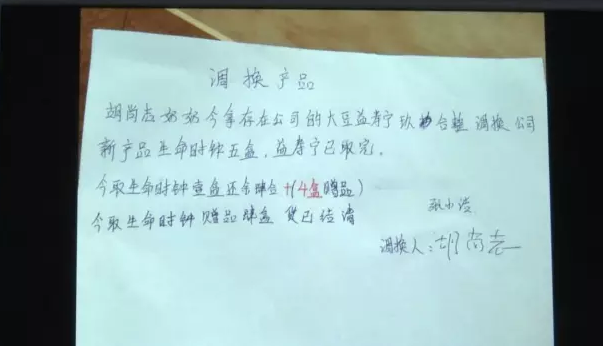 调换产品
胡尚志奶奶今拿存在公司的大豆益寿宁玖台整 调换公司
新产品生命时钟五盒，益寿宁已取完。
今取生命时钟壹盒还余肆合+(4盒赠品)
今取生命时钟赠品肆盒 货已结清
调换人：胡尚志